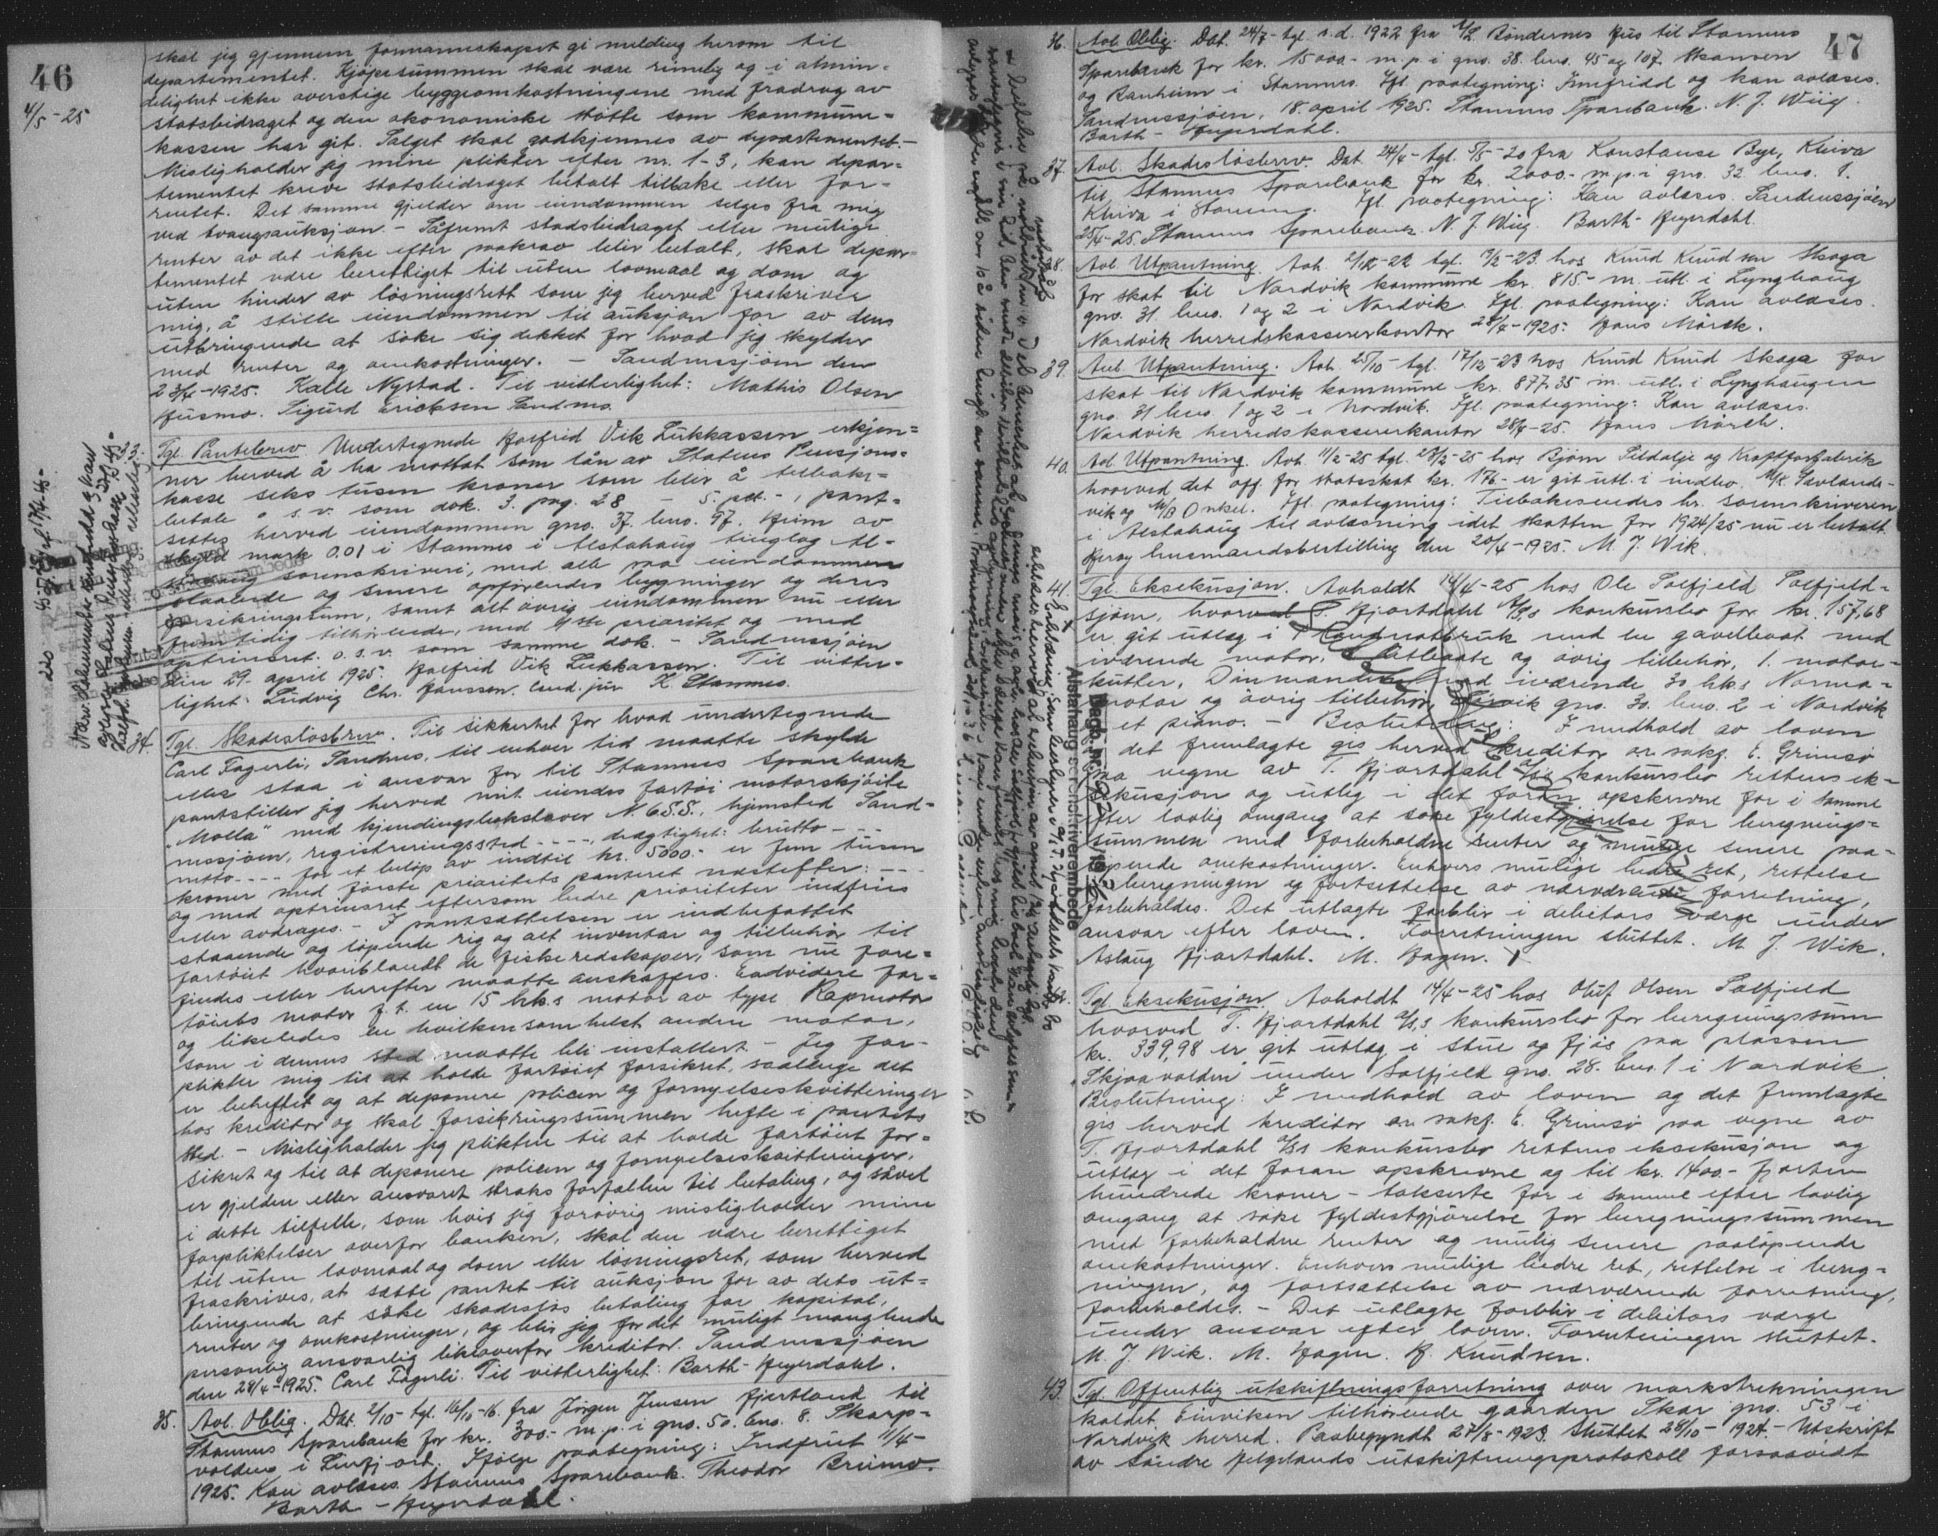 46
4/5-25
skal jeg gjennem formannskapet gi melding herom til
departementet. Kjøpesummen skal være rimelig og i almin-
delighet ikke overstige byggeomkostningene med fradrag av
statsbidraget og den økonomiske støtte som kommune-
kassen har git. Salget skal godkjennes av departementet.-
Misligholder jeg mine plikter efter nr. 1-3, kan depar-
tementet kreve statsbidraget betalt tilbake eller for-
rentet. Det samme gjelder om eiendommen selges fra mig
ved tvangsauksjon. - Såfremt statsbidraget eller mulige
renter av det ikke efter paakrav blir betalt, skal depar-
tementet være berettiget til uten lovmaal og dom og
uten hinder av løsningsrett som jeg herved fraskriver
mig, å stille eiendommen til auksjon for av dens
utbringende at søke sig dekket for hvad jeg skylder
med renter og omkostninger. - Sandnessjøen den
23/4-1925. Kalle Nystad. Til vitterlighet: Mathis Olsen
Husmo. Sigurd Ericksen Sandnes.
33.
Tgl. Pantebrev Undertegnede Hosfrid Vik Lukkassen erkjen-
ner herved å ha mottat som lån av Statens Pensjons-
kasse seks tusen kroner som blir å tilbake-
betale o.s.v. som dok. 3. pag. 28 - 5. pct. - , pant-
settes herved eiendommen gno. 37. bno. 97. Hjem av
skyld mark 0.01 i Stamnes i Alstahaug tinglag Al-
stahaug sorenskriveri, med alle paa eiendommen
staaende og senere opførendes bygninger og deres
forsikringssum, samt alt øvrig eiendommen nu eller
fremtidig tilhørende, med 1ste prioritet og med
optrinsret o.s.v. som samme dok. - Sandnessjøen
den 29. april 1925. Hosfrid Vik Lukkassen. Til vitter-
lighet: Ludvig Chr. Hanssen. cand. jur K. Stamnes.
34.
Tgl. Skadesløsbrev. Til sikkerhet for hvad undertegnede
Carl Fagerli, Sandnes, til enhver tid maatte skylde
eller staa i ansvar for til Stamnes Sparebank
pantstiller jeg herved mit eiendes fartøi motorskjøite
"Molla" med kjendingsbokstaver N. 6 S.S., hjemsted Sand-
nessjøen, registreringssted ----, drægtighet: brutto - --
netto ---- for et beløp av indtil kr. 5000.- er fem tusen
kroner med første prioritets panteret næstefter: ---
og med optrinsret eftersom bedre prioriteter indfries
eller avdrages. - I pantsættelsen er indbefattet
staaende og løpende rig og alt inventar og tilbehør til
fartøiet hvoriblandt de fiskeredskaper, som nu fore-
findes eller herefter maatte anskaffes. Endvidere far-
tøiets motor f.t. en 15 hk.s motor av type Rapmotor
og likeledes en hvilkensomhelst anden motor,
som i dennes sted maatte bli installert. - Jeg for-
plikter mig til at holde fartøiet forsikret, saalænge det
er beheftet og at deponere policen og fornyelseskvitteringer
hos kreditor og skal forsikringssummen hefte i pantets
sted. - Misligholder jeg plikten til at holde fartøiet for-
sikret og til at deponere policen og fornyelseskvitteringer,
er gjelden eller ansvaret straks forfallen til betaling, og såvel
i dette tilfelle, som hvis jeg forøvrig misligholder mine
forpliktelser overfor banken, skal den være berettiget
til uten lovmaal og dom eller løsningsret, som herved
fraskrives, at sætte pantet til auksjon for av dets ut-
bringende at søke skadesløs betaling for kapital,
renter og omkostninger, og blir jeg for det muligt manglende
personlig ansvarlig likeoverfor kreditor. Sandnessjøen
den 28/4-1925. Carl Fagerli. Til vitterlighet: Barth-Heyerdahl.
35.
Avl. Oblig. Dat. 2/10- tgl. 16/10-16. fra Jørgen Jensen Hjartland til
Stamnes Sparebank for kr. 300.- m.p. i gno. 50. bno. 8. Skarp-
volden i Leirfjord. Ifølge paategning: Indfriet 1/4-
1925. Kan avlæses Stamnes Sparebank. Theodor Brunvo.
Barth - Heyerdahl.
47
36.
Avl. Oblig. Dat. 24/7- tgl. s.d. 1922 fra A/L Bøndernes Hus til Stamnes
Sparebank for kr. 15000.- m.p. i gno. 38. bno. 45 og 107. Skansen
og Ranheim i Stamnes. Ifl. paategning: Innfridd og kan avlæses.
Sandnessjøen, 18. april 1925. Stamnes Sparebank. N. J. Wiig.
Barth - Heyerdahl.
37.
Avl. Skadesløsbrev. Dat. 24/4- tgl. 5/5-20 fra Konstanse Bye, Kleiva
til Stamnes Sparebank for kr. 2000.- m.p. i gno. 32. bno. 8.
Kleiva i Stamnes. Ifl. paategning: Kan avlæses. Sandnessjøen
25/4-25. Stamnes Sparebank. N. J. Wiig. Barth-Heyerdahl.
38.
Avl. Utpantning. Avh. 2/12-22 tgl. 17/2-23. hos Knud Knudsen Skaga
for skat til Nordvik kommune kr. 815.- m. utl. i Lynghaug
gno. 31. bno. 1 og 2 i Nordvik. Ifl. paategning: Kan avlæses.
Nordvik herredskassererkontor 28/4-1925. Hans Mørch.
39.
Avl. Utpantning. Avh. 25/10- tgl. 17/12-23 hos Knud Knud Skaga for
skat til Nordvik kommune kr. 877.35 m. utl. i Lynghaugen
gno. 31 bno. 1 og 2 i Nordvik. Ifl. paategning: Kan avlæses.
Nordvik herredskassererkontor 28/4-25. Hans Mørch.
40.
Avl. Utpantning. Avh. 11/2-25 tgl. 28/2-25 hos Bjørn Sildolje og Kraftforfabrik
hvorved det off. for statsskat kr. 176.- er git utl. i indbo. M/K Savlands-
vik og M/B Onkel. Ifl. paategning: Tilbakesendes hr. sorenskriveren
i Alstahaug til avlæsning idet skatten for 1924/25 nu er betalt.
Herøy lensmandsbestilling den 20/4-1925. M. J. Wik.
41.
Tgl. Eksekusjon. Avholdt 14/4-25 hos Ole Solfjeld Solfjeld-
sjøen, hvorved T. Hjortdahl A/S,s konkursbo for kr. 157,68
er git utlæg i 1 landnotbruk med en gavelbaat med
iværende motor, 2 letbaate og øvrig tilbehør, 1. motor-
kutter, Dønmanden med iværende 30 hk.s Norma-
motor og øvrig tilbehør, Leirvik gno. 30. bno. 2 i Nordvik
et piano. - Beslutning: I medhold av loven
det fremlagte ges herved kreditor or. sakf. E. Grimsø
paa vegne av T. Hjortdahl A/S's konkursbo rettens ek-
sekusjon og utlæg i det foran opskrevne for i samme
efter lovlig omgang at søke fyldestgjørelse for beregnings-
summen med forbeholdne renter og mulige senere paa-
løpende omkostninger. Enhvers mulige bedre ret, rettelse
i beregningen og fortsettelse av nærværende forretning,
forbeholdes. Det utlagte forblir i debitors værge under
ansvar efter loven. Forretningen sluttet. M. J. Wik.
Aslaug Hjortdahl. M. Hagen.
42.
Tgl. Eksekusjon. Avholdt 14/4-25 hos Oluf Olsen Solfjeld
hvorved T. Hjortdahl A/S,s konkursbo for beregningssum
kr. 339,98 er git utlæg i stue og fjøs paa plassen
"Skjaavolden" under Solfjeld gno. 28. bno. 1 i Nordvik.
Beslutning: I medhold av loven og det fremlagte
ges herved kreditor or. sakf. E. Grimsø paa vegne av
T. Hjortdahl A/S's konkursbo rettens eksekusjon og
utlæg i det foran opskrevne og til kr. 1400.- fjorten
hundrede kroner - takserte for i samme efter lovlig
omgang at søke fyldestgjørelse for beregningssummen
med forbeholdne renter og mulig senere paaløpende
omkostninger. Enhvers mulige bedre ret, rettelse i bereg-
ningen, og fortsættelse av nærværende forretning,
forbeholdes. - Det utlagte forblir i debitors værge
under ansvar efter loven. Forretningen sluttet.
M. J. Wik. M. Hagen. H. Knudsen.
43.
Tgl. Offentlig utskiftningsforretning over markstrekningen
kaldet Einviken tilhørende gaarden Skar gno. 53 i
Nordvik herred. Paabegyndt 27/8-1923. Sluttet 28/10-1924. - Utskrift
av Søndre Helgelands utskiftningsprotokoll forsaavidt